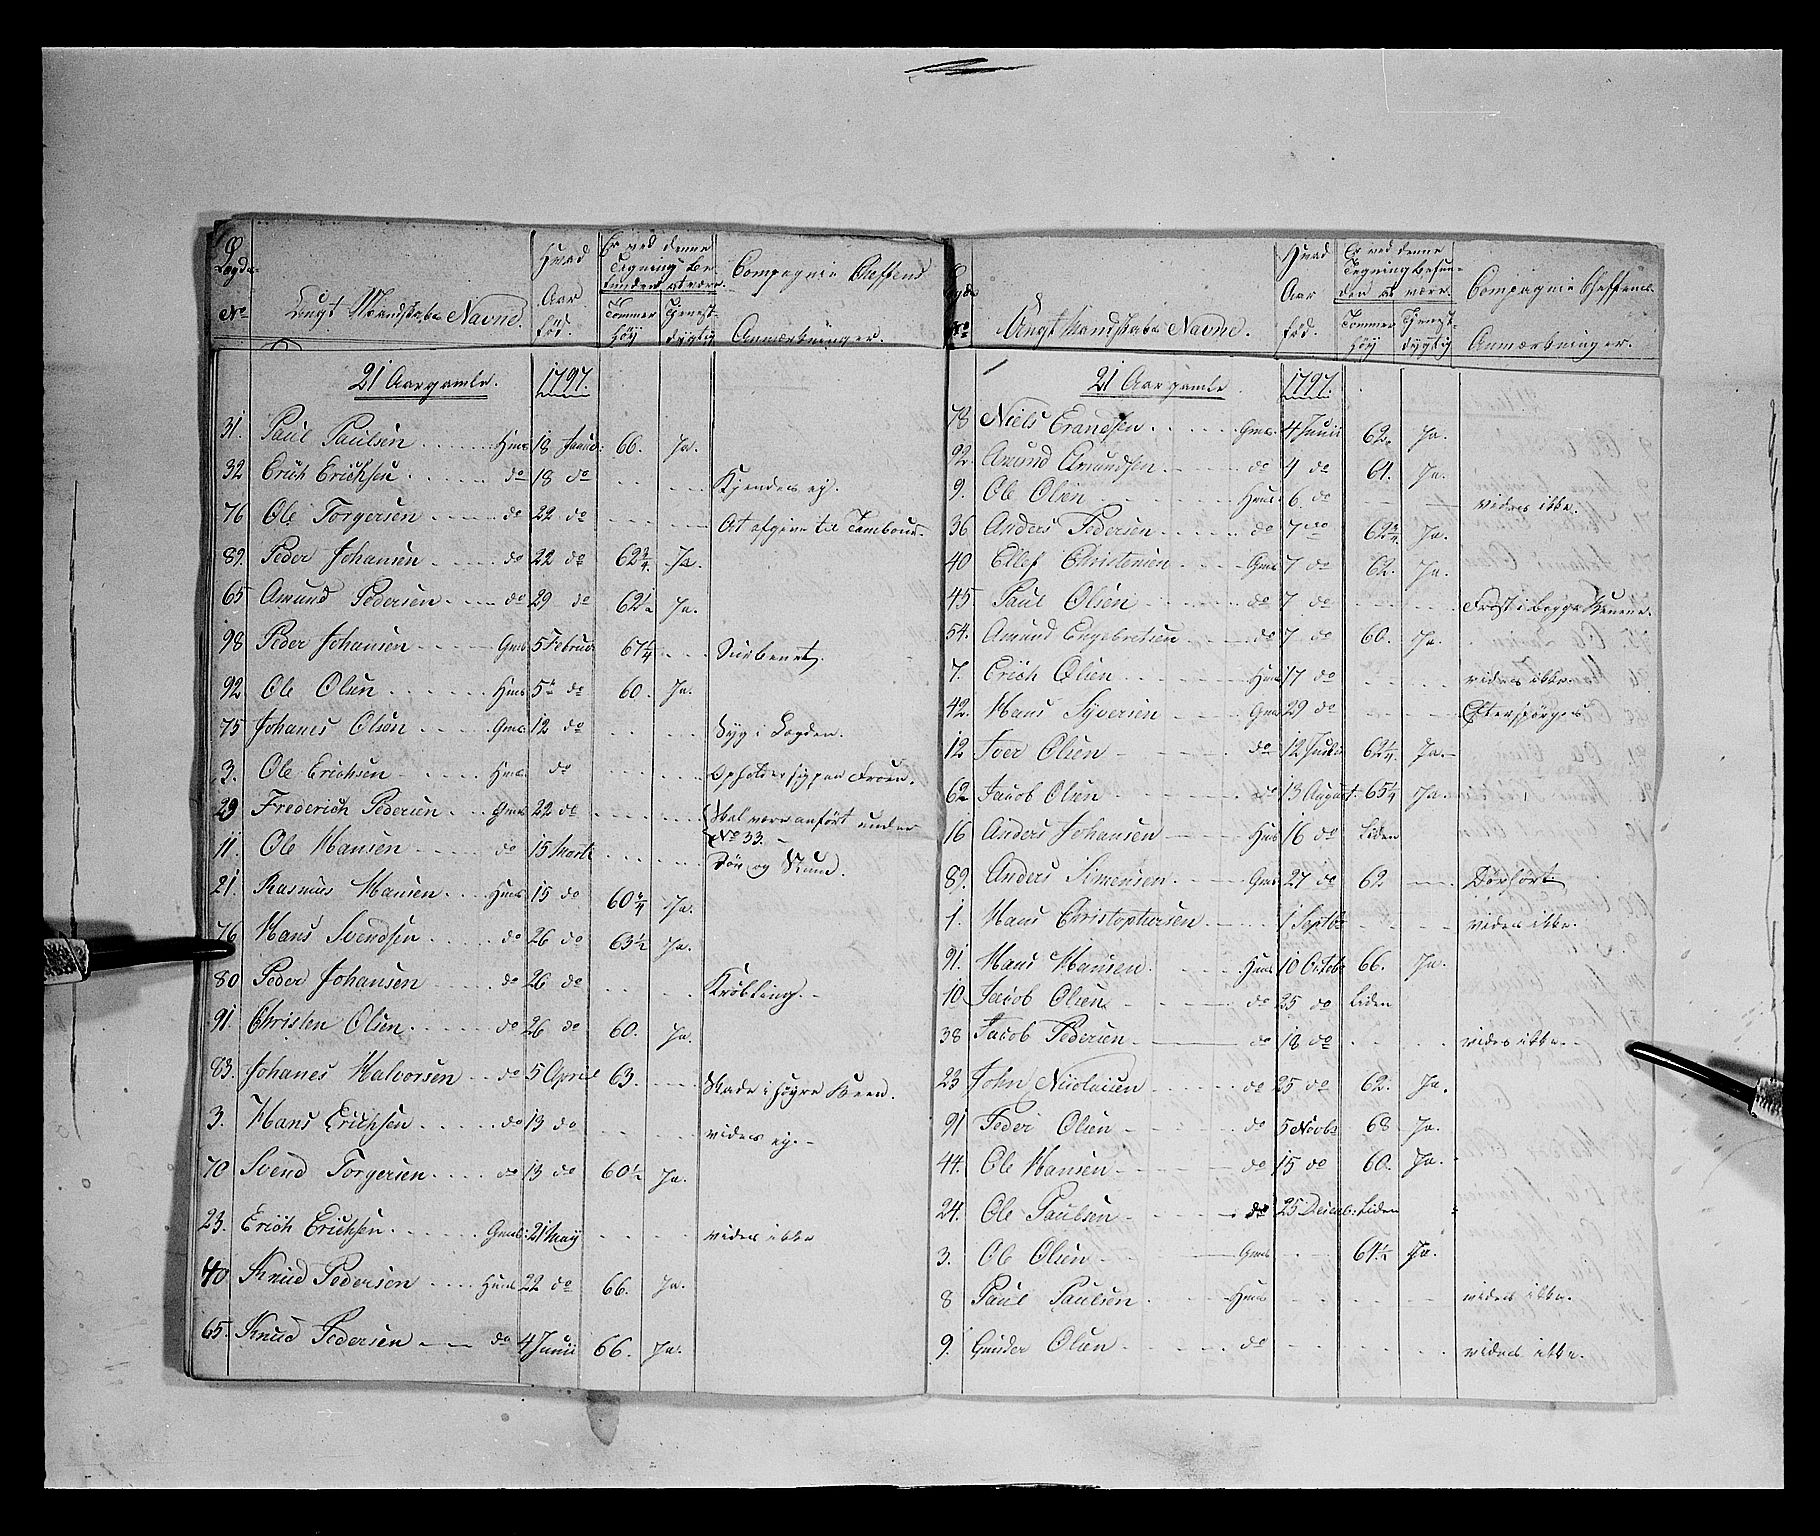 Lægde No Ungt Mandskabs Navne. Hvad Aar fød. Er ved denne Tegning befunden at være Tommer Høy Tjenst-dygtig Compagnie Cheffens Anmærkninger.
21 Aar gamle. 1797.
31. Paul Paulsen Hms 18 Janua: 66. Ja.
32 Erich Erichsen do 18 do Kjendes ey.
76 Ole Torgersen do 22 do At afgive til Tambour
89. Peder Johansen do 22 do 62 3/4 Ja.
65 Amund Pedersen do 29 do 62 1/2 Ja.
98 Peder Johansen Gms 5 Februa: 67 1/4
92 Ole Olsen Hms 5te do 60. Ja.
75 Johanes Olsen Gms 12 do Syg i Lægden.
3. Ole Erichsen Hms do
29 Frederich Pedersen Gms 22 do Skal være anført under No 33.
11. Ole Hansen do 15 Marti Døv og Stum.
21. Rasmus Hansen Hms 15 do 60 3/4 Ja.
76 Hans Svendsen do 26 do 63 1/2 Ja.
80 Peder Johansen do 26 do Krøbling.
91 Christen Olsen do 26 do 60. Ja.
83. Johanes Halvorsen do 5 April 63. Skade i høyre Been.
3. Hans Erichsen do 13 do vides ey.
70 Svend Torgersen do 13 do 60 1/2 Ja.
23. Erich Erichsen Gms: 21 May vides ikke
40 Knud Pedersen Hms 22 do 66. Ja.
65. Knud Pedersen do 4 Junii 66. Ja.
No Ungt Mandskabs Navne. Hvad Aar fød. Er ved denne Tegning befunden at være. Tommer Høy Tjenst-dygtig Compagnie Cheffens Anmærkninger.
21 Aar gamle 1797.
78 Niels Erandsen Gms 4 Junii 62. Ja.
92. Amund Amundsen do 4 do 64. Ja.
9. Ole Olsen Hms 6 do vides ikke.
36 Anders Pedersen do 7 do 62 3/4 Ja.
40 Ellef Christensen Gms 7 do 62. Ja.
45. Paul Olsen do 7 do Frost i begge Beenene.
54. Amund Engebretsen do 7 do 60. Ja.
7. Erich Olsen Hms 17 do vides ikke.
42. Hans Syversen Gms 29 do Efterspørges
12 Iver Olsen do 12 Julii 62 1/4 Ja.
62 Jacob Olsen do 13 August 65 1/4 Ja.
16 Anders Johansen Hms 16 do Liden
89. Anders Simensen Gms 27 do 62
1. Hans Christophersen 1 Septb: vides ikke.
91. Hans Hansen Hms 10 Octob: 66. Ja.
10 Jacob Olsen do 25 do Liden
38 Jacob Pedersen do 18 do vides ikke.
23 John Nicolaisen do 25 do 62. Ja.
91 Peder Olsen do 5 Novb: 68 Ja.
44. Ole Hansen do 15 do 60. Ja.
24. Ole Paulsen do 25 Decemb: Liden
3. Ole Olsen Gms 64 1/2 Ja.
8 Paul Paulsen Hms vides ikke.
9. Gunder Olsen do vides ikke.